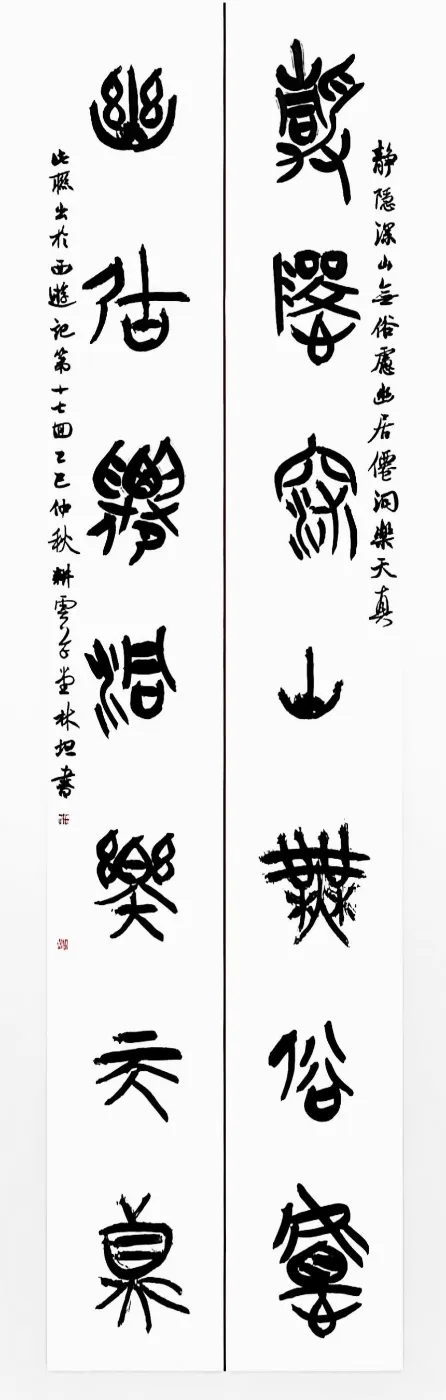 静隱深山無俗慮幽居僊洞樂天真
靜隱深山無俗慮
幽居僊洞樂天真
此聯出於西遊記第十七回乙巳仲秋耕雲草堂林坦書